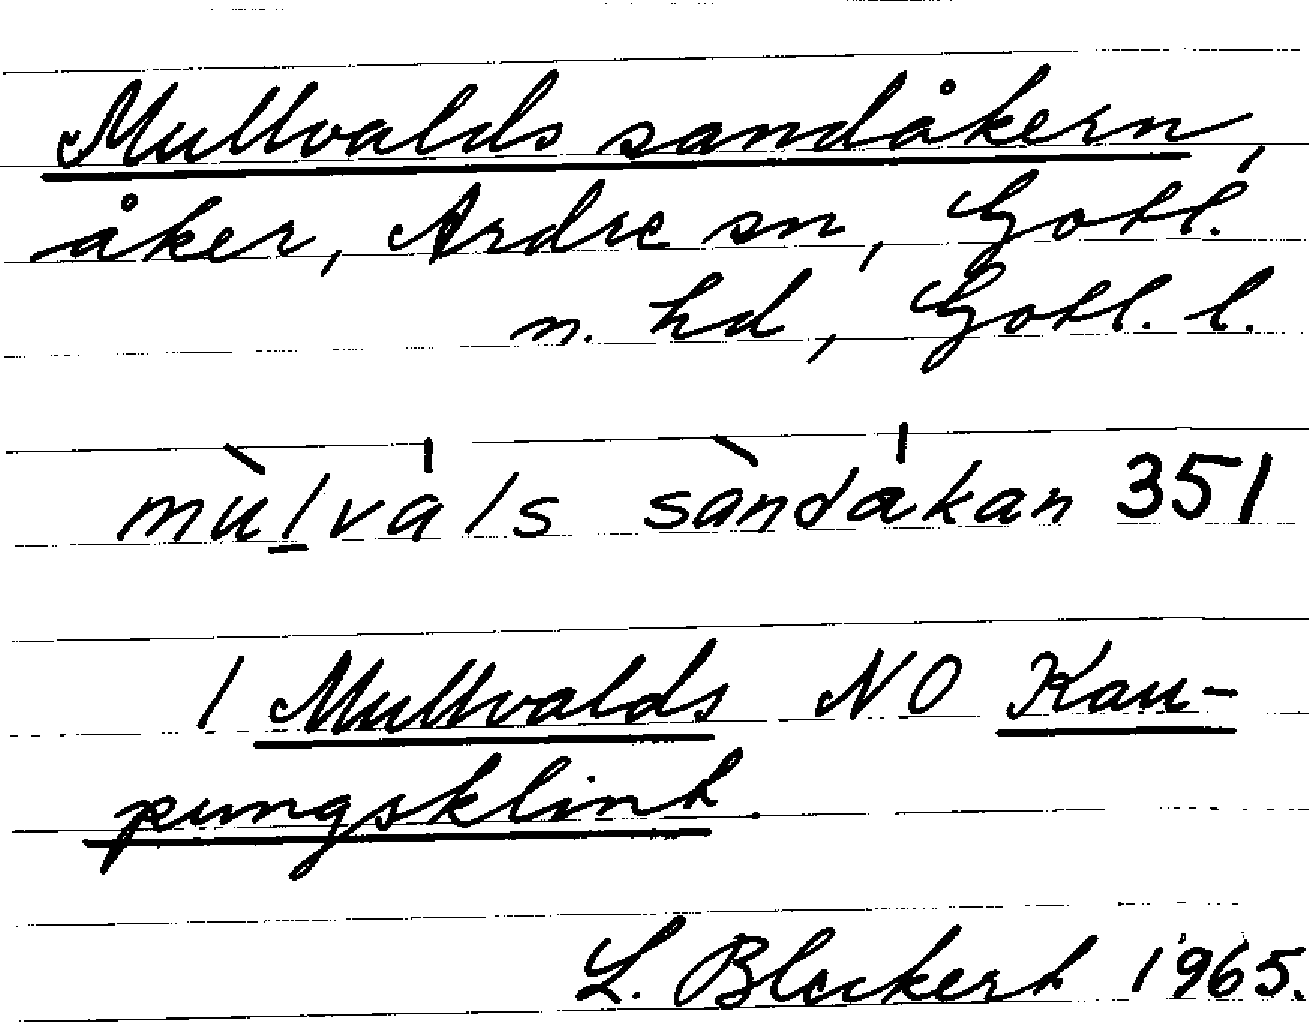 Mullvalds sandåkern,
åker, Ardre sn, Gotl.
n. hd, Gotl. l.
mùlváls sàndákan 351
I Mullvalds NO Kau-
pungsklint.
L. Bleckert 1965.